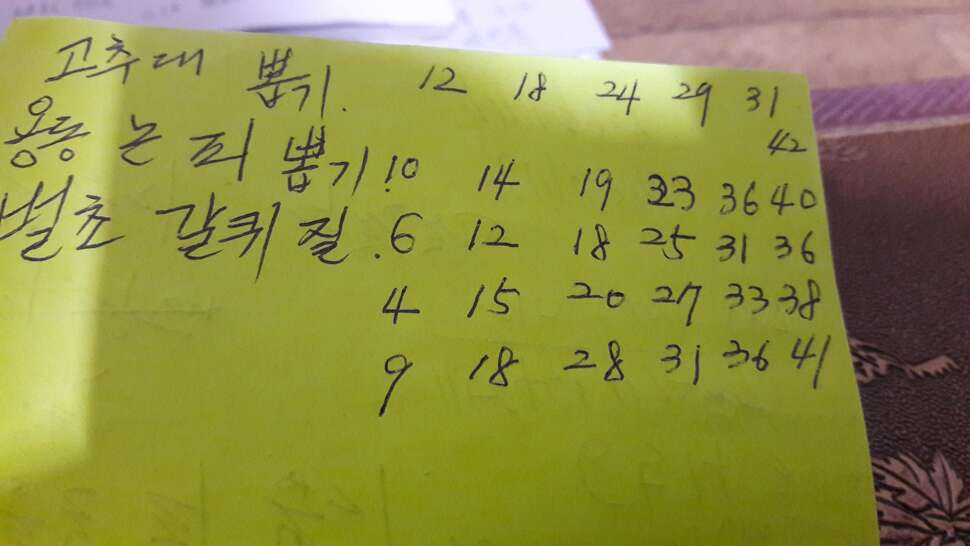 고추대 뽑기. 12 18 24 29 31
42
용동 논 피 뽑기 10 14 19 33 36 40
벌초 갈퀴질. 6 12 18 25 31 36
4 15 20 27 33 38
9 18 28 31 36 41